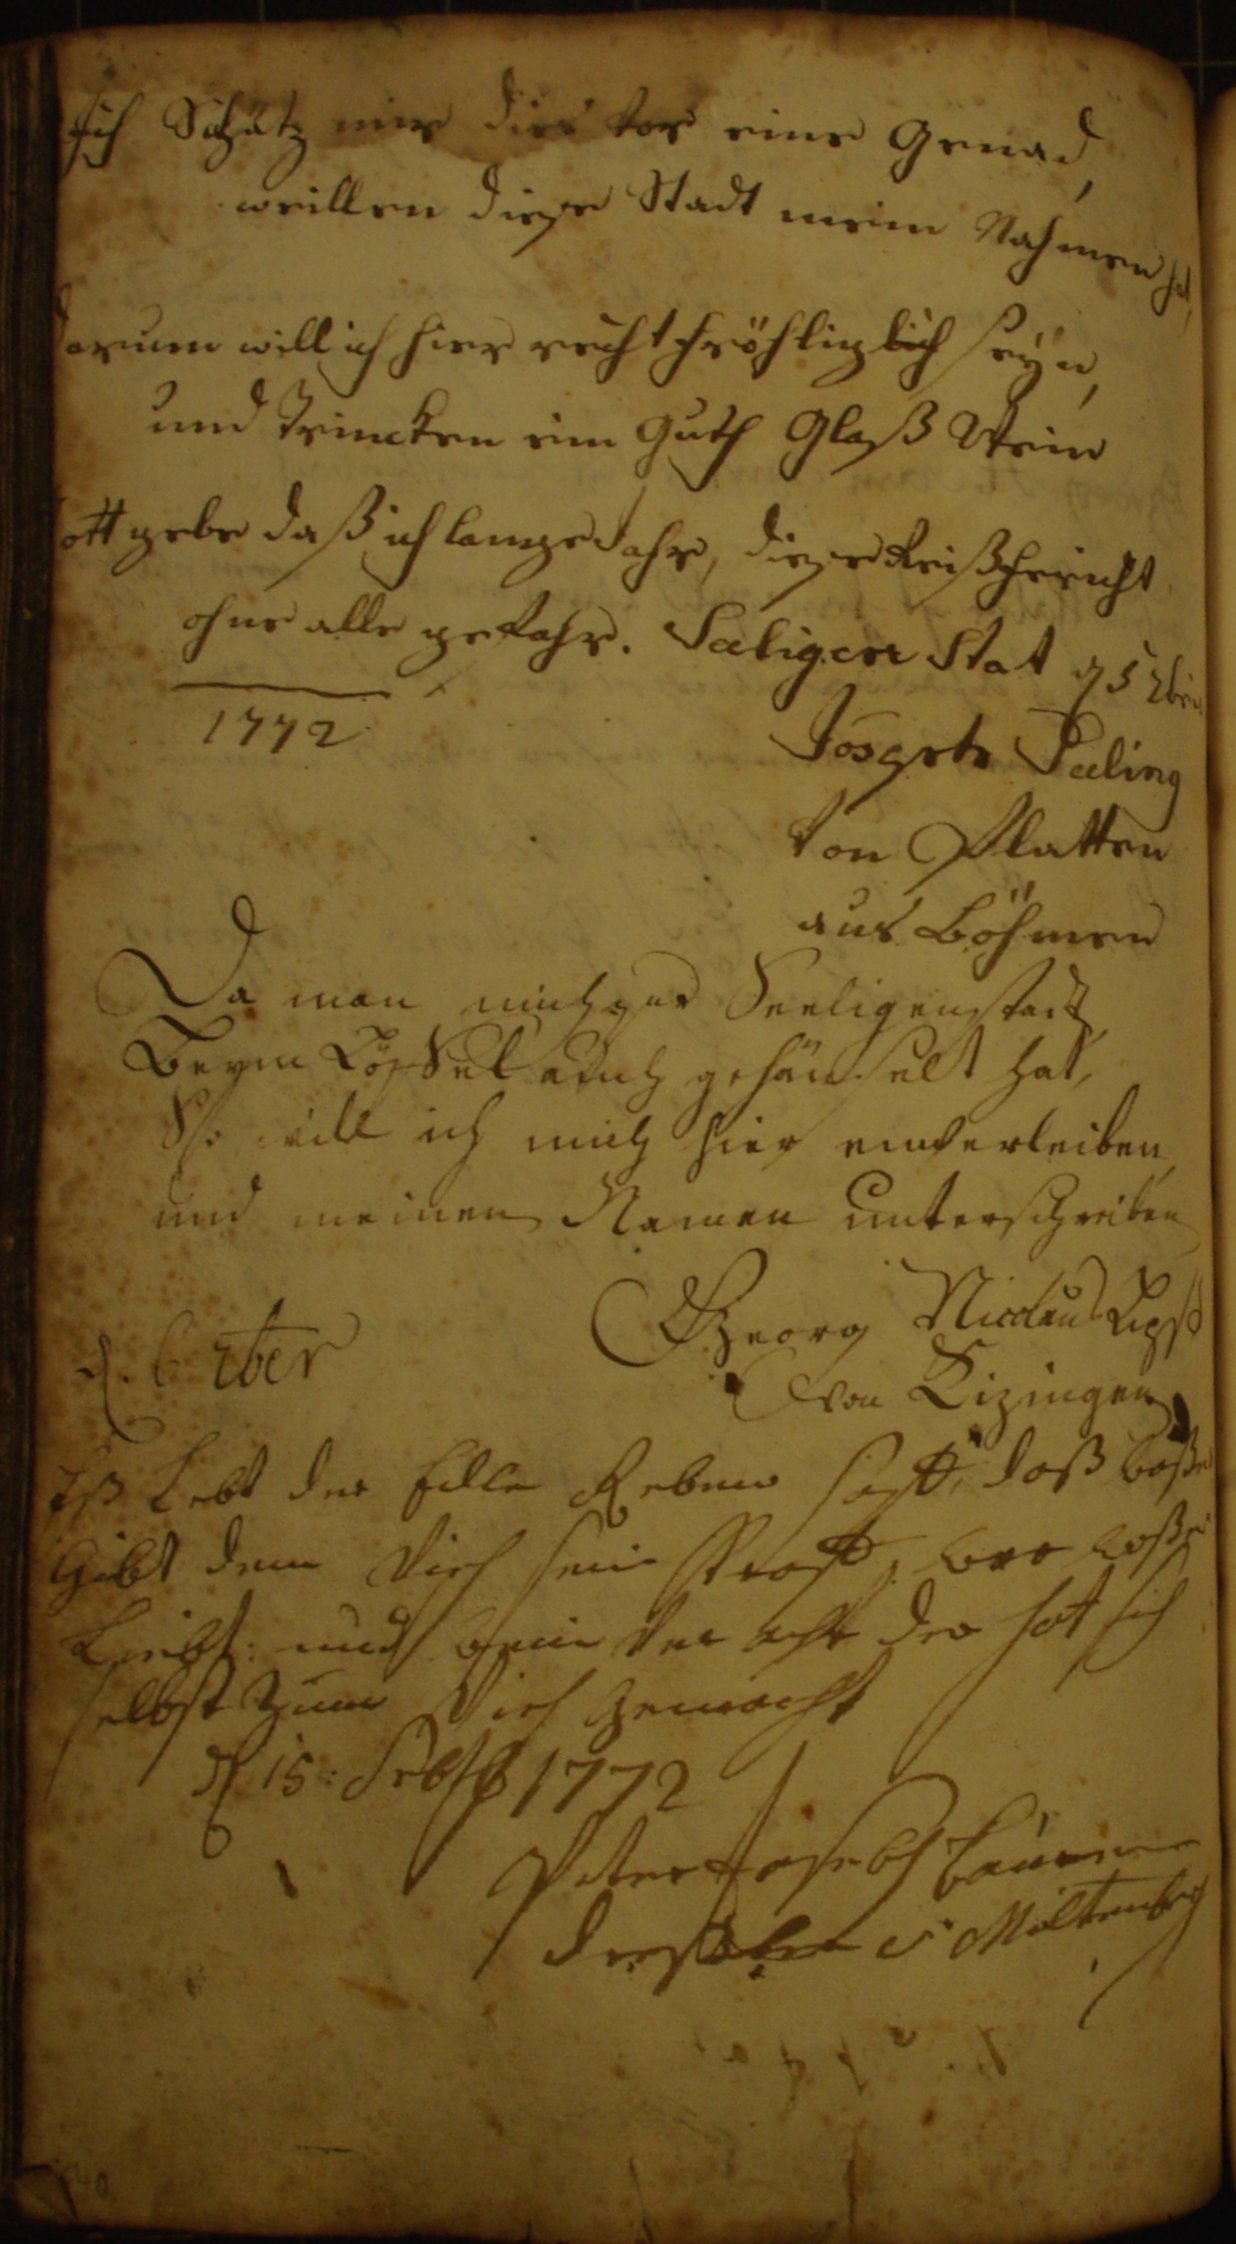 Ich Schätz mir dies vor eine Genad,
weillen diese Stadt meim Nahmen hat,
darum will ich hier recht fröhliglich seÿn,
und Trincken ein Guth Glaß Wein
Gott gebe daß ich lange Jahr, diese Reiß Verricht
ohne alle gefahr. Saeligen Stat 5 7bris
1772
Joseph Saeling
von Platten
aus Böhmen
Da man mich zur Seeligenstadt,
Beym Löffel auch gehänselt hat,
So will ich mich hier einverleiben,
und meinen Namen unterschreiben
Georg Nicolaus
von Kizingen
d. 6 7ber
Eß Lebt der Edle Reben safft, daß waßer
Gibt dem Vieh sein Krafft, wer waßer
Liebt und wein ver acht der hat sich
selbst zum Vieh gemacht
d 15: 1772
Peter Joseph
Miltenberg